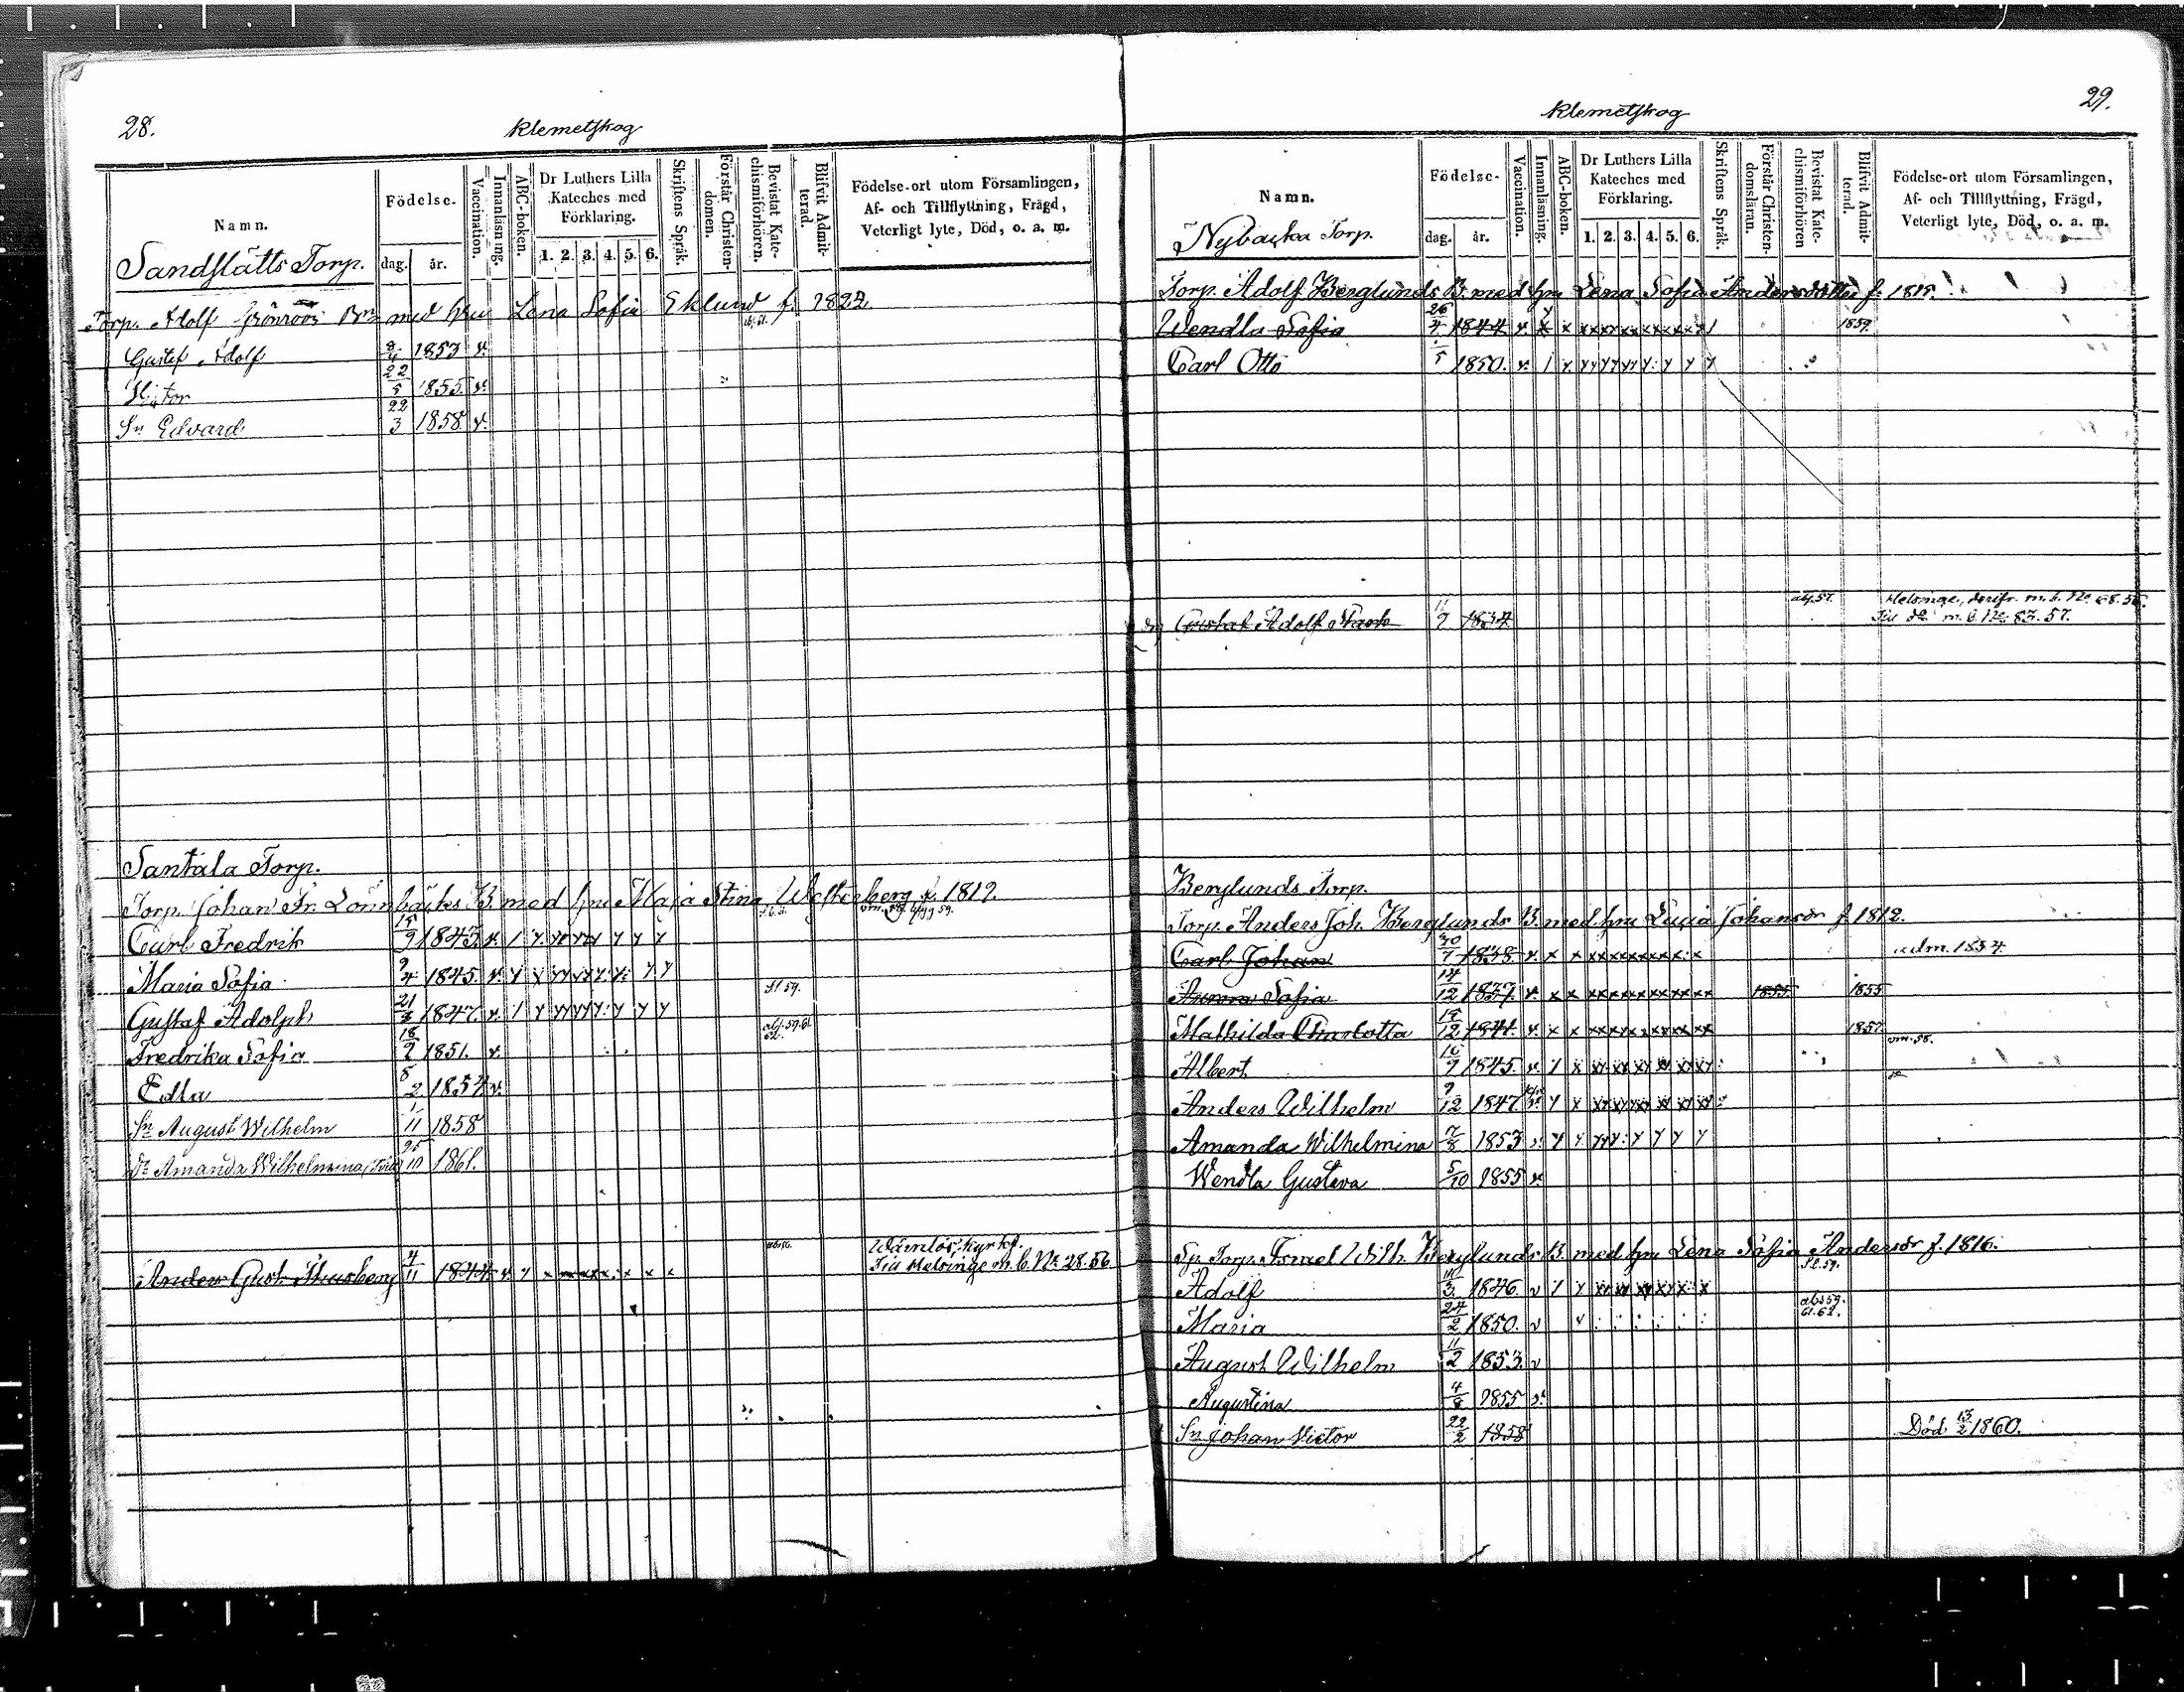 28.
Klemetskog
Namn.
Födelse-
dag.
år.
Vaccination.
Innanläsning.
ABC-boken.
Dr Luthers Lilla
Kateches med
Förklaring.
1. 2. 3. 4. 5. 6.
Skriftens Språk.
Förstår Christen-
domen.
Bevistat Kate-
chismiförhören.
Blifvit Admit-
terad.
Födelse-ort utom Församlingen,
Af- och Tillflyttning, Frägd,
Veterligt lyte, Död, o. a. m.
Sandslätts Torp.
Torp. Adolf Grönroos Bn med hru Lena Sofia Eklund f. 1822
Gustef Adolf 1853 v.
22/5 1855 v.
Sn Edvard 22/3 1858 v.
Santala Torp.
Torp. Johan Fr. Lönnbäcks B. med hru Maja Stina Westerberg f. 1819.
Carl Fredrik 15/9 1843. v. 1 y.
Maria Sofia 9/4 1845. v. y x
Sl 59.
Gustaf Adolph 1847. v. 1 y
abs. 59.61.
62.
Fredrika Sofia 18/9 1851. v.
Edla 8/2 1854 v.
Sn August Wilhelm 1/11 1858
Dr Amanda Wilhelmina 25/10 1861.
Anders Gust. 4/11 1844 v y
Till Helsinge m. b. No 28.56
29.
Klemetskog
Namn.
Födelse-
dag.
år.
Vaccination.
Innanläsning.
ABC-boken.
Dr Luthers Lilla
Kateches med
Förklaring.
1. 2. 3. 4. 5. 6.
Skriftens Språk.
Förstår Christen-
domsläran.
Bevistat Kate-
chismiförhören
Blifvit Admit-
terad.
Födelse-ort utom Församlingen,
Af- och Tillflyttning, Frägd,
Veterligt lyte, Död, o. a. m.
Nybacka Torp.
Torp. Adolf Berglunds B. med hru Lena Sofia Andersdotter f. 1815.
Wendla Sofia 26/4 1844 v. x x 1859
Carl Otto 1850. v. 1 y.
abs. 57.
Helsinge, derifr. m. b. No 68.56.
Gustaf Adolf 11/9 1834
Till do m. b. No 83.57.
Berglunds Torp.
Torp. Anders Joh. Berglunds B. med hru Lucia Johansdr f. 1812.
Carl Johan 30/7 1838 v. x x adm. 1854
Sofia 14/12 1839 v. x x 1855 1855
Mathilda Charlotta 12 1841. v. x x 1857
Albert 16/9 1845. v. 1 x
Anders Wilhelm 9/12 1847 y x
Amanda Wilhelmina 7/8 1853 y y
Wendla Gustava 5/10 1855 v.
Sy. Torp. Wilh. Berglunds B. med hru Lena Sofia Andersdr f. 1816.
Sl. 59.
Adolf 1846. v 1 y
abs 59.
61.62.
Maria 24/2 1850. v
August Wilhelm 11/2 1853 v
Augustina 1855 v.
Sn Johan Victor 22/2 1858 Död 13/2 1860.